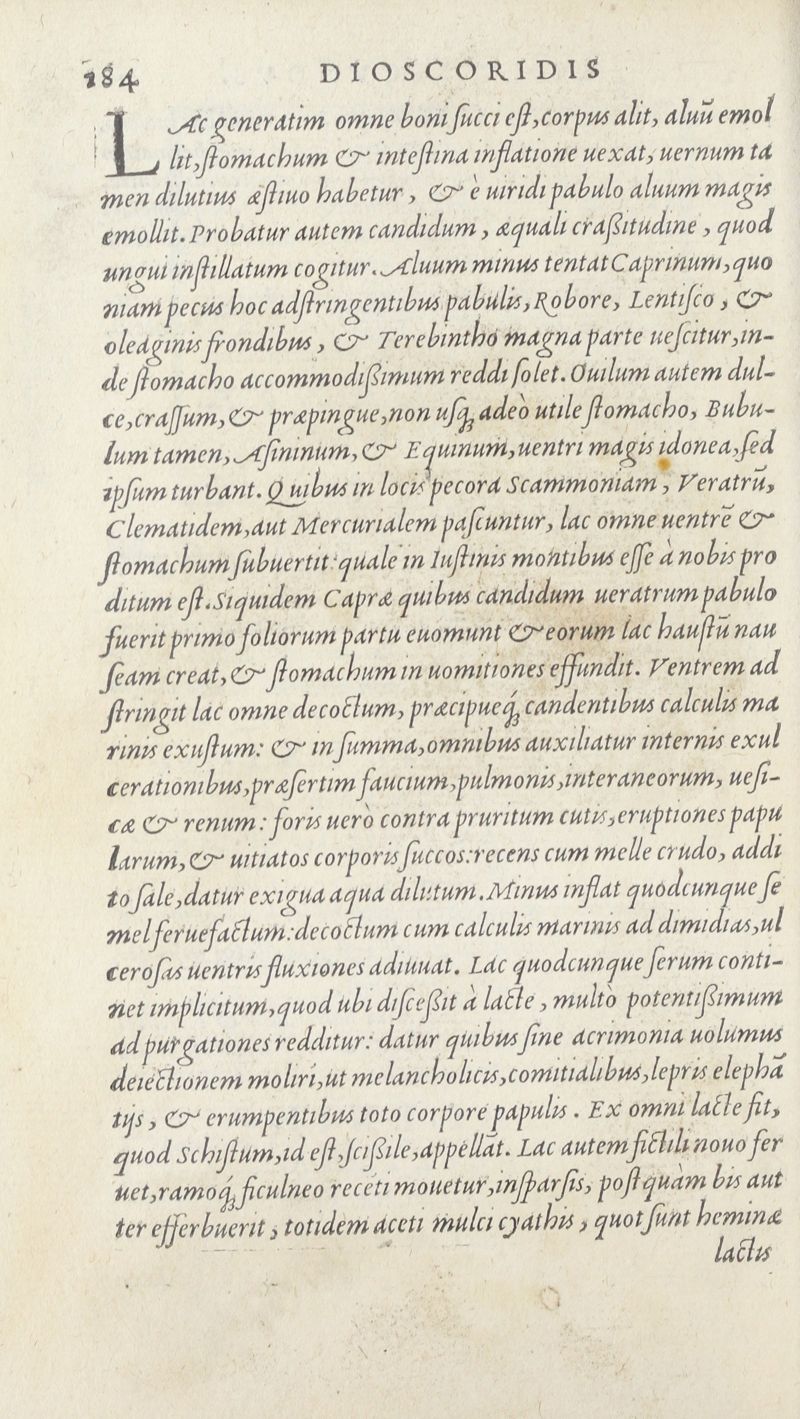 184 DIOSCORIDIS
LAc generatim omne boni ſucci eſt, corpus alit, aluū emol
lit, ſtomachum & inteſtina inflatione uexat, uernum ta
men dilutius æſtiuo habetur, & è uiridi pabulo aluum magis
emollit. Probatur autem candidum, æquali craßitudine, quod
ungui inſtillatum cogitur. Aluum minus tentat Caprinum, quo
niam pecus hoc adſtringentibus pabulis, Robore, Lentiſco, &
oleaginis frondibus, & Terebintho magna parte ueſcitur, in-
de ſtomacho accommodißimum reddi ſolet. Ouilum autem dul-
ce, craſſum, & præpingue, non uſq; adeò utile ſtomacho, Bubu-
lum tamen, Aſininum, & Equinum, uentri magis idonea, ſed
ipſum turbant. Quibus in locis pecora Scammoniam, Veratrū,
Clematidem, aut Mercurialem paſcuntur, lac omne uentrē &
ſtomachum ſubuertit: quale in Iuſtinis montibus eſſe à nobis pro
ditum eſt. Siquidem Capræ quibus candidum ueratrum pabulo
fuerit primo foliorum partu euomunt & eorum lac hauſtū nau
ſeam creat, & ſtomachum in uomitiones effundit. Ventrem ad
ſtringit lac omne decoctum, præcipueq́; candentibus calculis ma
rinis exuſtum: & in ſumma, omnibus auxiliatur internis exul
cerationibus, præſertim faucium, pulmonis, interaneorum, ueſi-
cæ & renum: foris uerò contra pruritum cutis, eruptiones papu
larum, & uitiatos corporis ſuccos: recens cum melle crudo, addi
to ſale, datur exigua aqua dilutum. Minus inflat quodcunque ſe
mel feruefactum: decoctum cum calculis marinis ad dimidias, ul
ceroſas uentris fluxiones adiuuat. Lac quodcunque ſerum conti-
net implicitum, quod ubi diſceßit à lacte, multò potentißimum
ad purgationes redditur: datur quibus ſine acrimonia uolumus
deiectionem moliri, ut melancholicis, comitialibus, lepris elephā
tijs, & erumpentibus toto corpore papulis. Ex omni lacte fit,
quod Schiſtum, id eſt, ſcißile, appellāt. Lac autem fictili nouo fer
uet, ramoq́; ficulneo recēti mouetur, inſparſis, poſtquàm bis aut
ter efferbuerit, totidem aceti mulci cyathis, quot ſunt heminæ
lactis